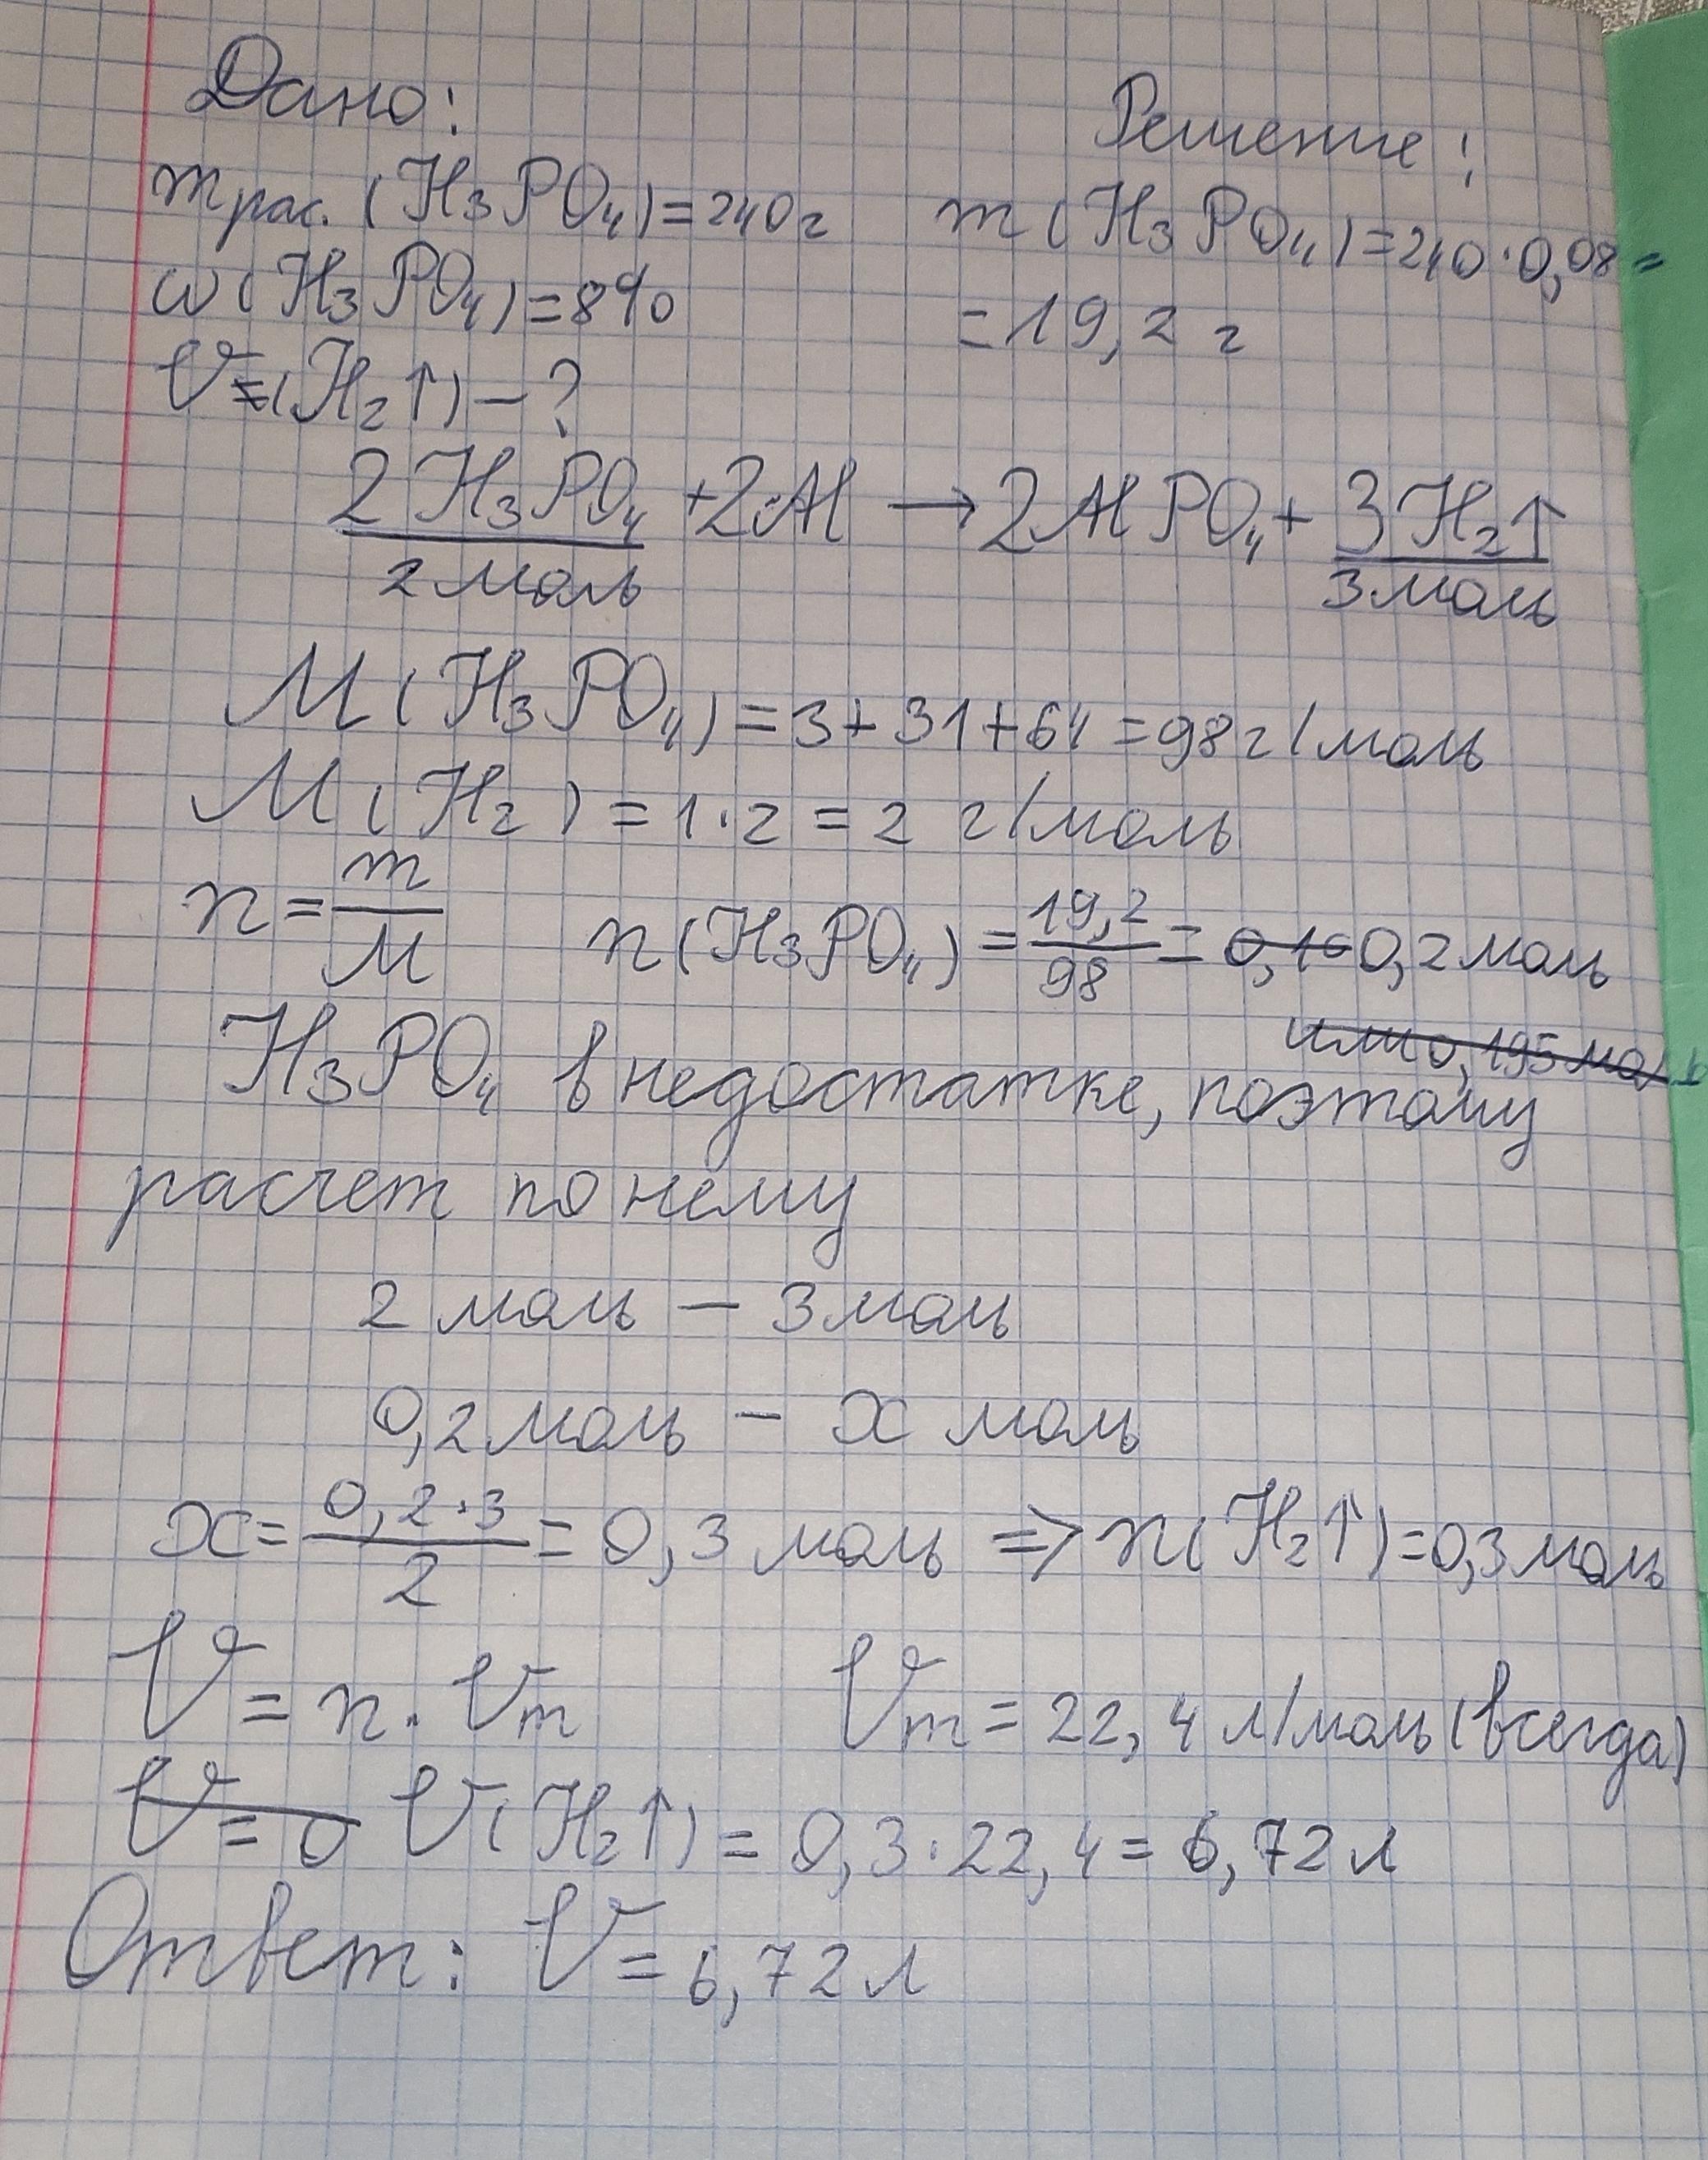 Дано:
Решение:
mрас. (H₃PO₄)=240г
m(H₃PO₄)=240·0,08=
ω(H₃PO₄)=8%
=19,2 г
V=(H₂↑)-?
2H₃PO₄+2Al→2AlPO₄+3H₂↑
2 моль 3 моль
M(H₃PO₄)=3+31+64=98г/моль
M(H₂)=1·2=2 г/моль
n=m/M n(H₃PO₄)=19,2/98=0,16 0,2 моль
или 0,195 моль
H₃PO₄ в недостатке, поэтому
расчет по нему
2 моль – 3 моль
0,2 моль – x моль
x=0,2·3/2=0,3 моль => n(H₂↑)=0,3 моль
V=n·Vm Vm=22,4 л/моль (всегда)
V=0 V(H₂↑)=0,3·22,4=6,72 л
Ответ: V=6,72 л